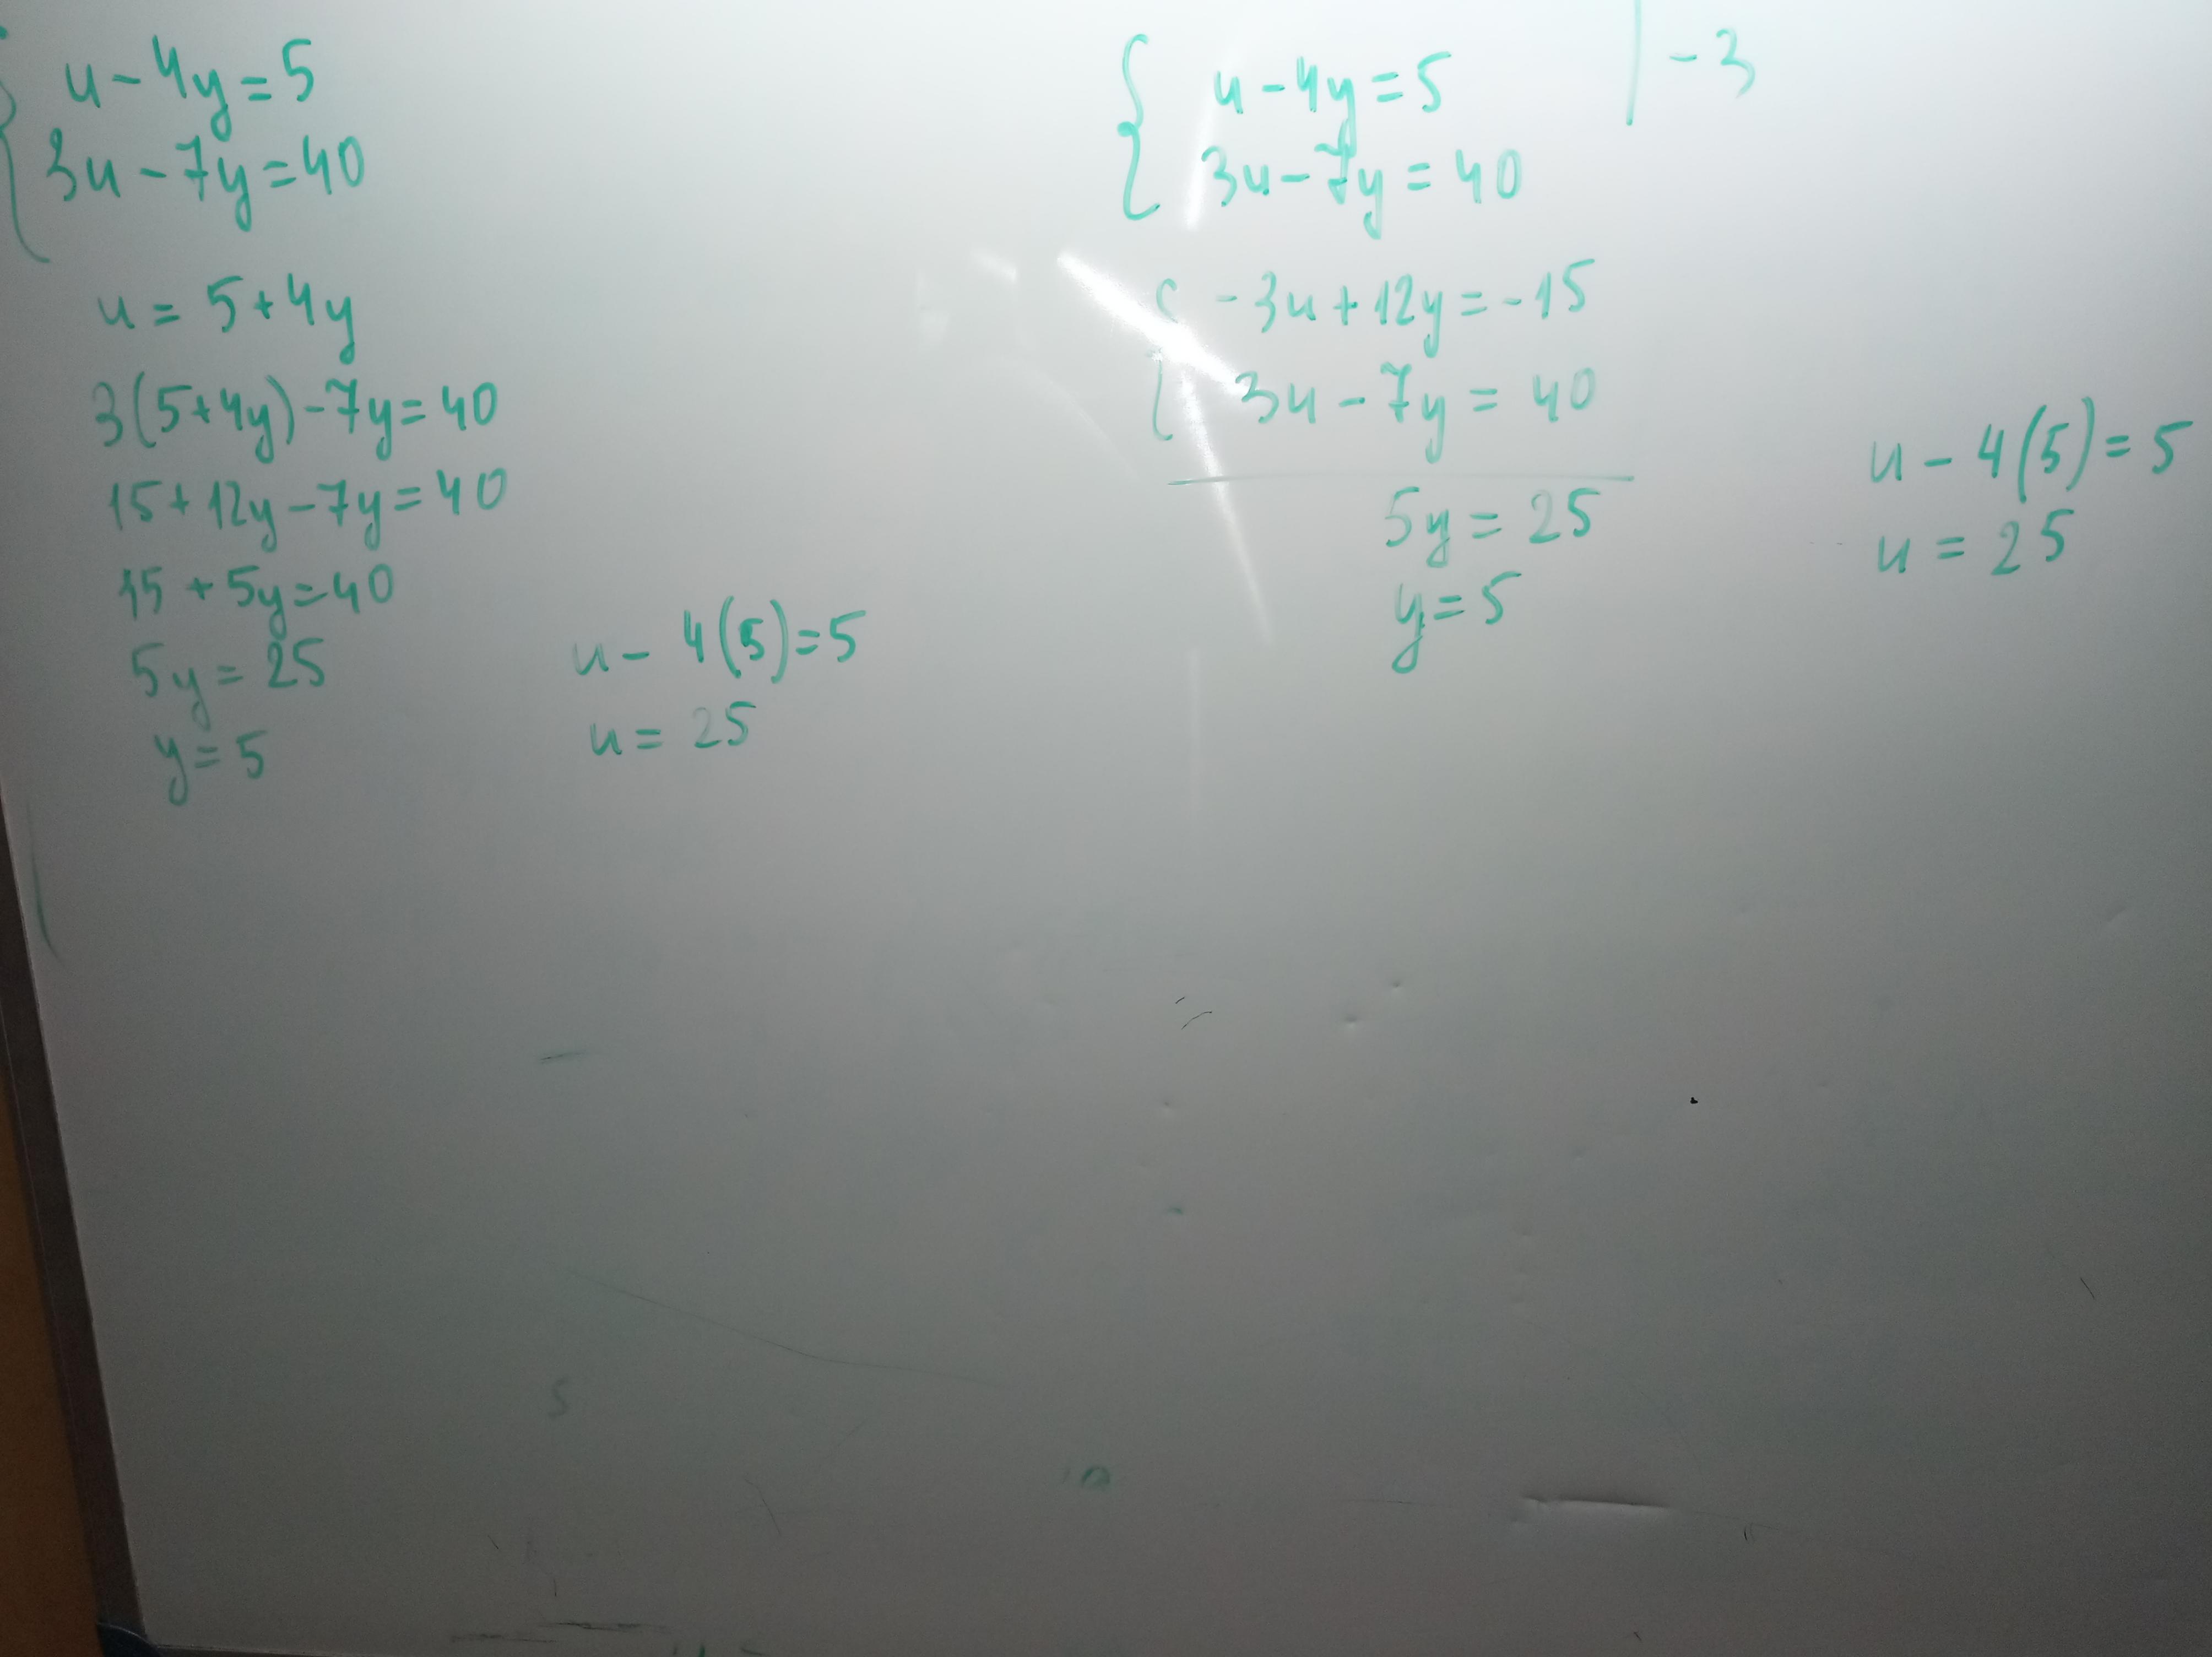 u-4y=5
3u-7y=40
u=5+4y
3(5+4y)-7y=40
15+12y-7y=40
15+5y=40
5y=25
y=5
u-4(5)=5
u=25
{ u-4y=5 |-3
3u-7y=40
-3u+12y=-15
3u-7y=40
5y=25
y=5
u-4(5)=5
u=25